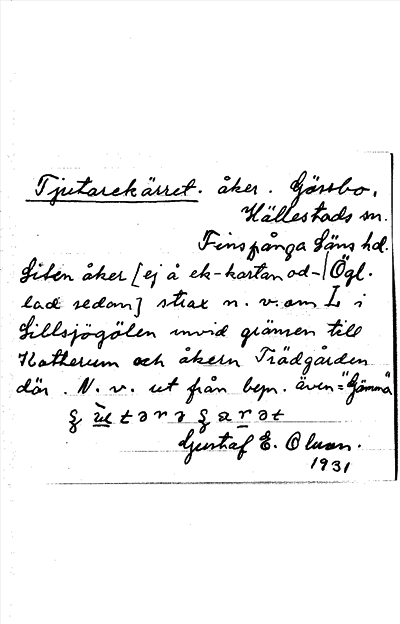 Tjutarekärret. åker. Görsbo,
Hällestads sn.
Finspånga läns hd.
Liten åker [ej å ek-kartan od- Ögl.
lad sedan] strax n. v. om L i
Lillsjögölen invid gränsen till
Katherum och åkern Trädgården
där. N. v. ut från bepn. även = "Gömma"
Gustaf E. Olsson.
1931